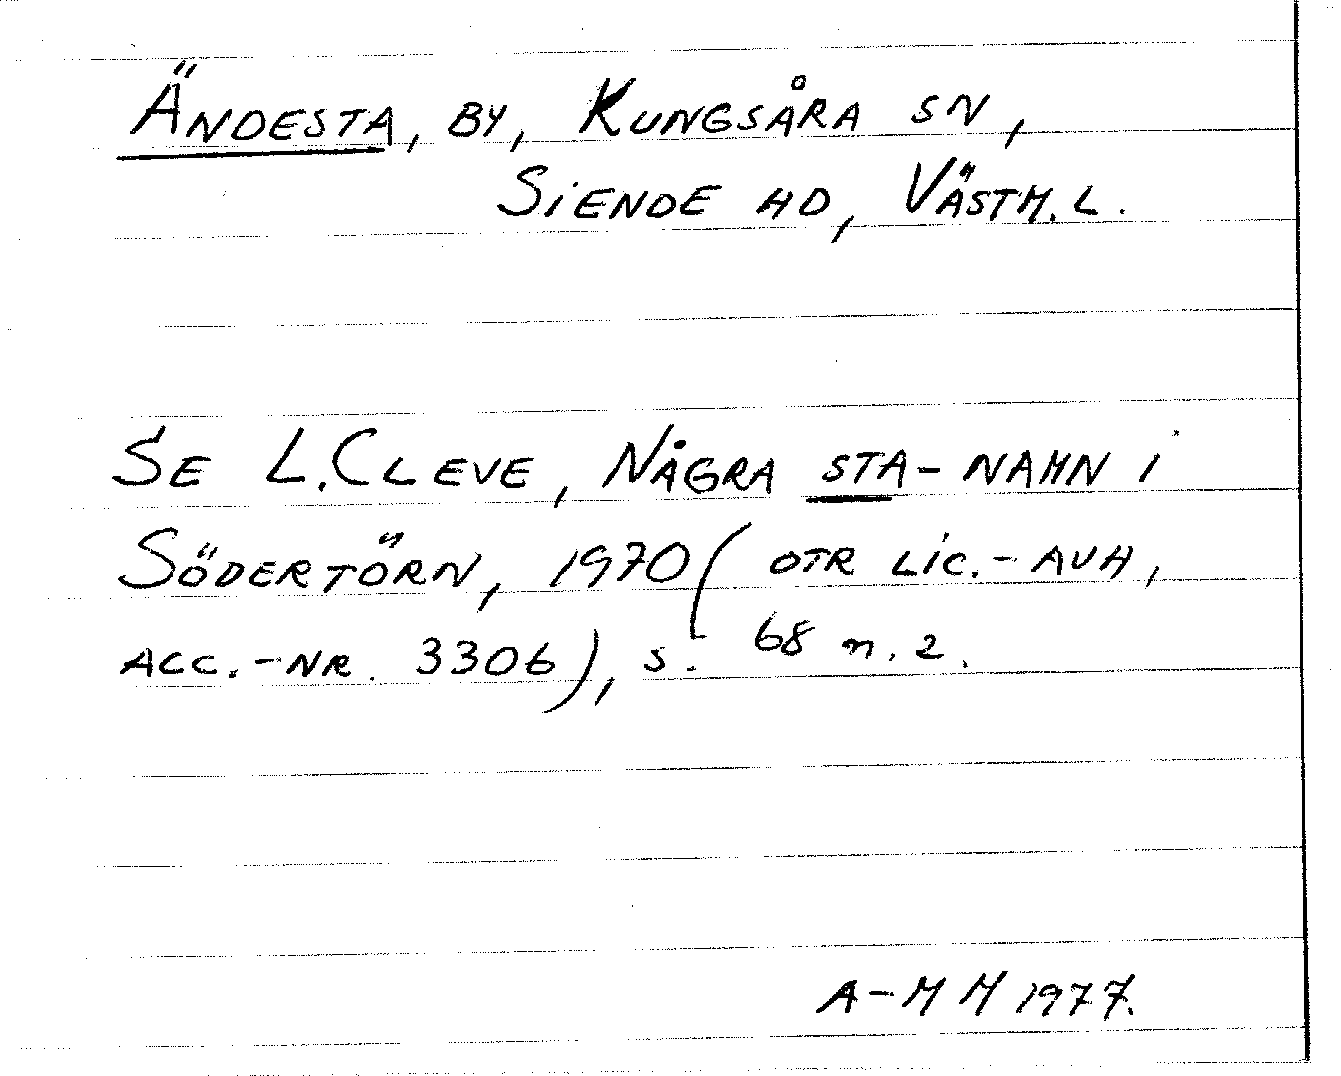 ÄNDESTA, BY, KUNGSÅRA SN,
SIENDE HD, VÄSTM. L.
SE L. CLEVE, NÅGRA STA-NAMN I
SÖDERTÖRN, 1970 (OTR LIC.-AVH,
ACC.-NR. 3306), S. 68 n. 2.
A-M M 1977.